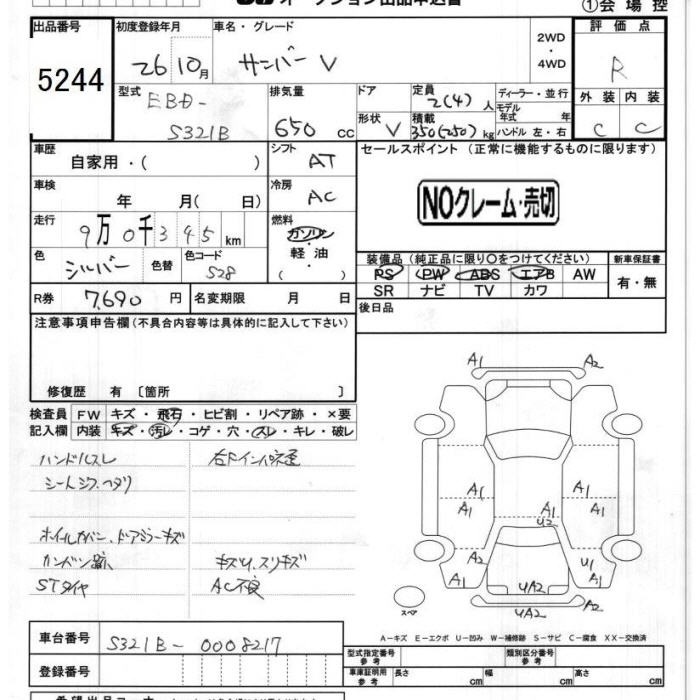 ①会場控
出品番号 初度登録年月 車名・グレード 評価点
5244 26 10月 サンバーV 2WD・4WD R
型式 排気量 ドア 定員 ディーラー・並行 外装 内装
EBD- 2(4)人 モデル年式 年 C C
S321B 650cc 形状 V 積載 350(250)kg ハンドル 左・右
車歴 シフト セールスポイント (正常に機能するものに限ります)
自家用・( ) AT
車検 冷房 NOクレーム・売切
年 月( 日) AC
走行 9万0千345km 燃料
ガソリン・
軽油・
( )
色 シルバー 色替 色コード S28
装備品 (純正品に限り○をつけてください) 新車保証書
PS PW ABS エアB AW 有・無
SR ナビ TV カワ
R券 7,690円 名変期限 月 日 後日品
注意事項申告欄(不具合内容等は具体的に記入して下さい)
修復歴 有 〔箇所 〕
検査員 FW キズ・飛石・ヒビ割・リペア跡・×要
記入欄 内装 キズ・汚レ・コゲ・穴・スレ・キレ・破レ
ハンドルスレ
シートシワ、ヘタリ
ホイールカバー、ドアミラーキズ
カンバン跡 キズ凹、スリキズ
STタイヤ AC不良
A1 A2
A1 A1
A1 A1 A1
U2
A2 U1
A1 UA2 A1
スペア UA2 A2
A-キズ E-エクボ U-凹み W-補修跡 S-サビ C-腐食 XX-交換済
車台番号 S321B-0008217
型式指定番号 参考 類別区分番号 参考
登録番号 車庫証明用 参考 長さ cm 幅 cm 高さ cm